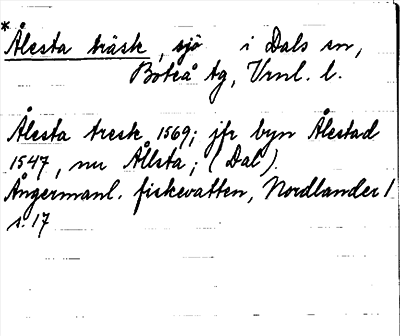 *Ålesta träsk, sjö i Dals sn,
Boteå tg, Vrnl. l.
Ålesta tresk 1569; jfr byn Ålestad
1547, nu Ållsta; (Dal)
Ångermanl. fiskevatten, Nordlander 1
s. 17